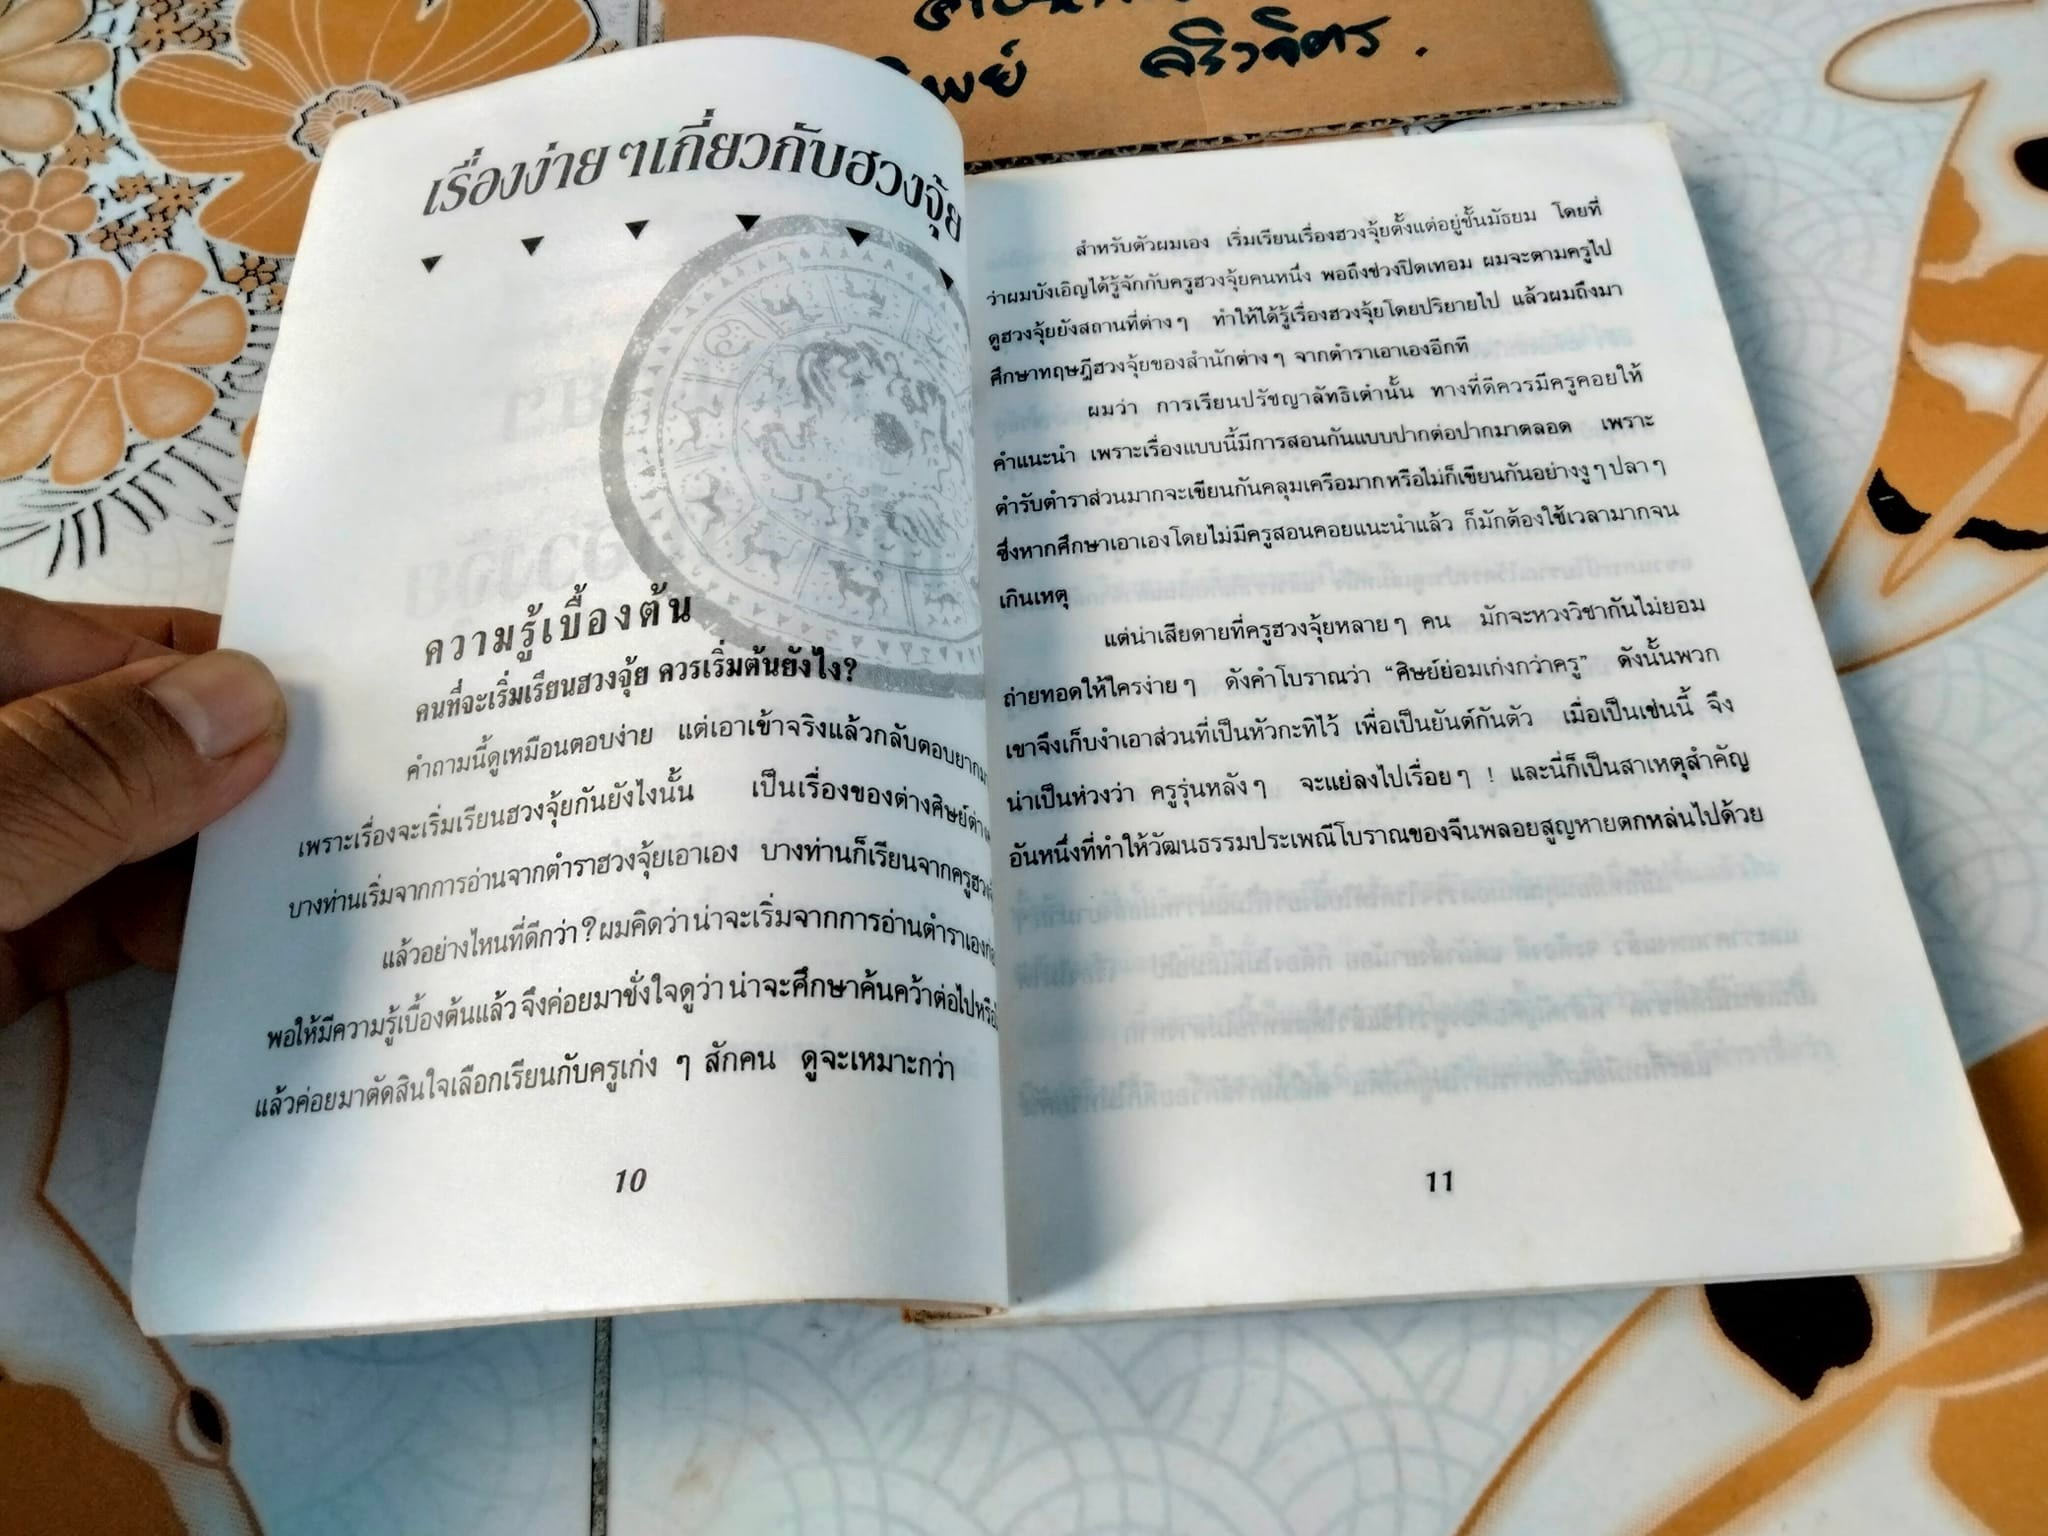 สิริจิตร .
เรื่องง่าย ๆ เกี่ยวกับฮวงจุ้ย
ความรู้เบื้องต้น
คนที่จะเริ่มเรียนฮวงจุ้ย ควรเริ่มต้นยังไง?
คำถามนี้ดูเหมือนตอบง่าย แต่เอาเข้าจริงแล้วกลับตอบยาก
เพราะเรื่องจะเริ่มเรียนฮวงจุ้ยกันยังไงนั้น เป็นเรื่องของต่างศิษย์ต่าง
บางท่านเริ่มจากการอ่านจากตำราฮวงจุ้ยเอาเอง บางท่านก็เรียนจากครู
แล้วอย่างไหนที่ดีกว่า? ผมคิดว่าน่าจะเริ่มจากการอ่านตำราเอง
พอให้มีความรู้เบื้องต้นแล้ว จึงค่อยมาชั่งใจดูว่า น่าจะศึกษาค้นคว้าต่อไป
แล้วค่อยมาตัดสินใจเลือกเรียนกับครูเก่ง ๆ สักคน ดูจะเหมาะกว่า
10
สำหรับตัวผมเอง เริ่มเรียนเรื่องฮวงจุ้ยตั้งแต่อยู่ชั้นมัธยม โดยที่
ว่าผมบังเอิญได้รู้จักกับครูฮวงจุ้ยคนหนึ่ง พอถึงช่วงปิดเทอม ผมจะตามครูไป
ดูฮวงจุ้ยยังสถานที่ต่าง ๆ ทำให้ได้รู้เรื่องฮวงจุ้ยโดยปริยายไป แล้วผมถึงมา
ศึกษาทฤษฎีฮวงจุ้ยของสำนักต่าง ๆ จากตำราเอาเองอีกที
ผมว่า การเรียนปรัชญาลัทธิเต๋านั้น ทางที่ดีควรมีครูคอยให้
คำแนะนำ เพราะเรื่องแบบนี้มีการสอนกันแบบปากต่อปากมาตลอด เพราะ
ตำรับตำราส่วนมากจะเขียนกันคลุมเครือมาก หรือไม่ก็เขียนกันอย่างงู ๆ ปลา ๆ
ซึ่งหากศึกษาเอาเองโดยไม่มีครูสอนคอยแนะนำแล้ว ก็มักต้องใช้เวลามากจน
เกินเหตุ
แต่น่าเสียดายที่ครูฮวงจุ้ยหลาย ๆ คน มักจะหวงวิชากันไม่ยอม
ถ่ายทอดให้ใครง่าย ๆ ดังคำโบราณว่า “ศิษย์ย่อมเก่งกว่าครู” ดังนั้นพวก
เขาจึงเก็บงำเอาส่วนที่เป็นหัวกะทิไว้ เพื่อเป็นยันต์กันตัว เมื่อเป็นเช่นนี้ จึง
น่าเป็นห่วงว่า ครูรุ่นหลัง ๆ จะแย่ลงไปเรื่อย ๆ ! และนี่ก็เป็นสาเหตุสำคัญ
อันหนึ่งที่ทำให้วัฒนธรรมประเพณีโบราณของจีนพลอยสูญหายตกหล่นไปด้วย
11